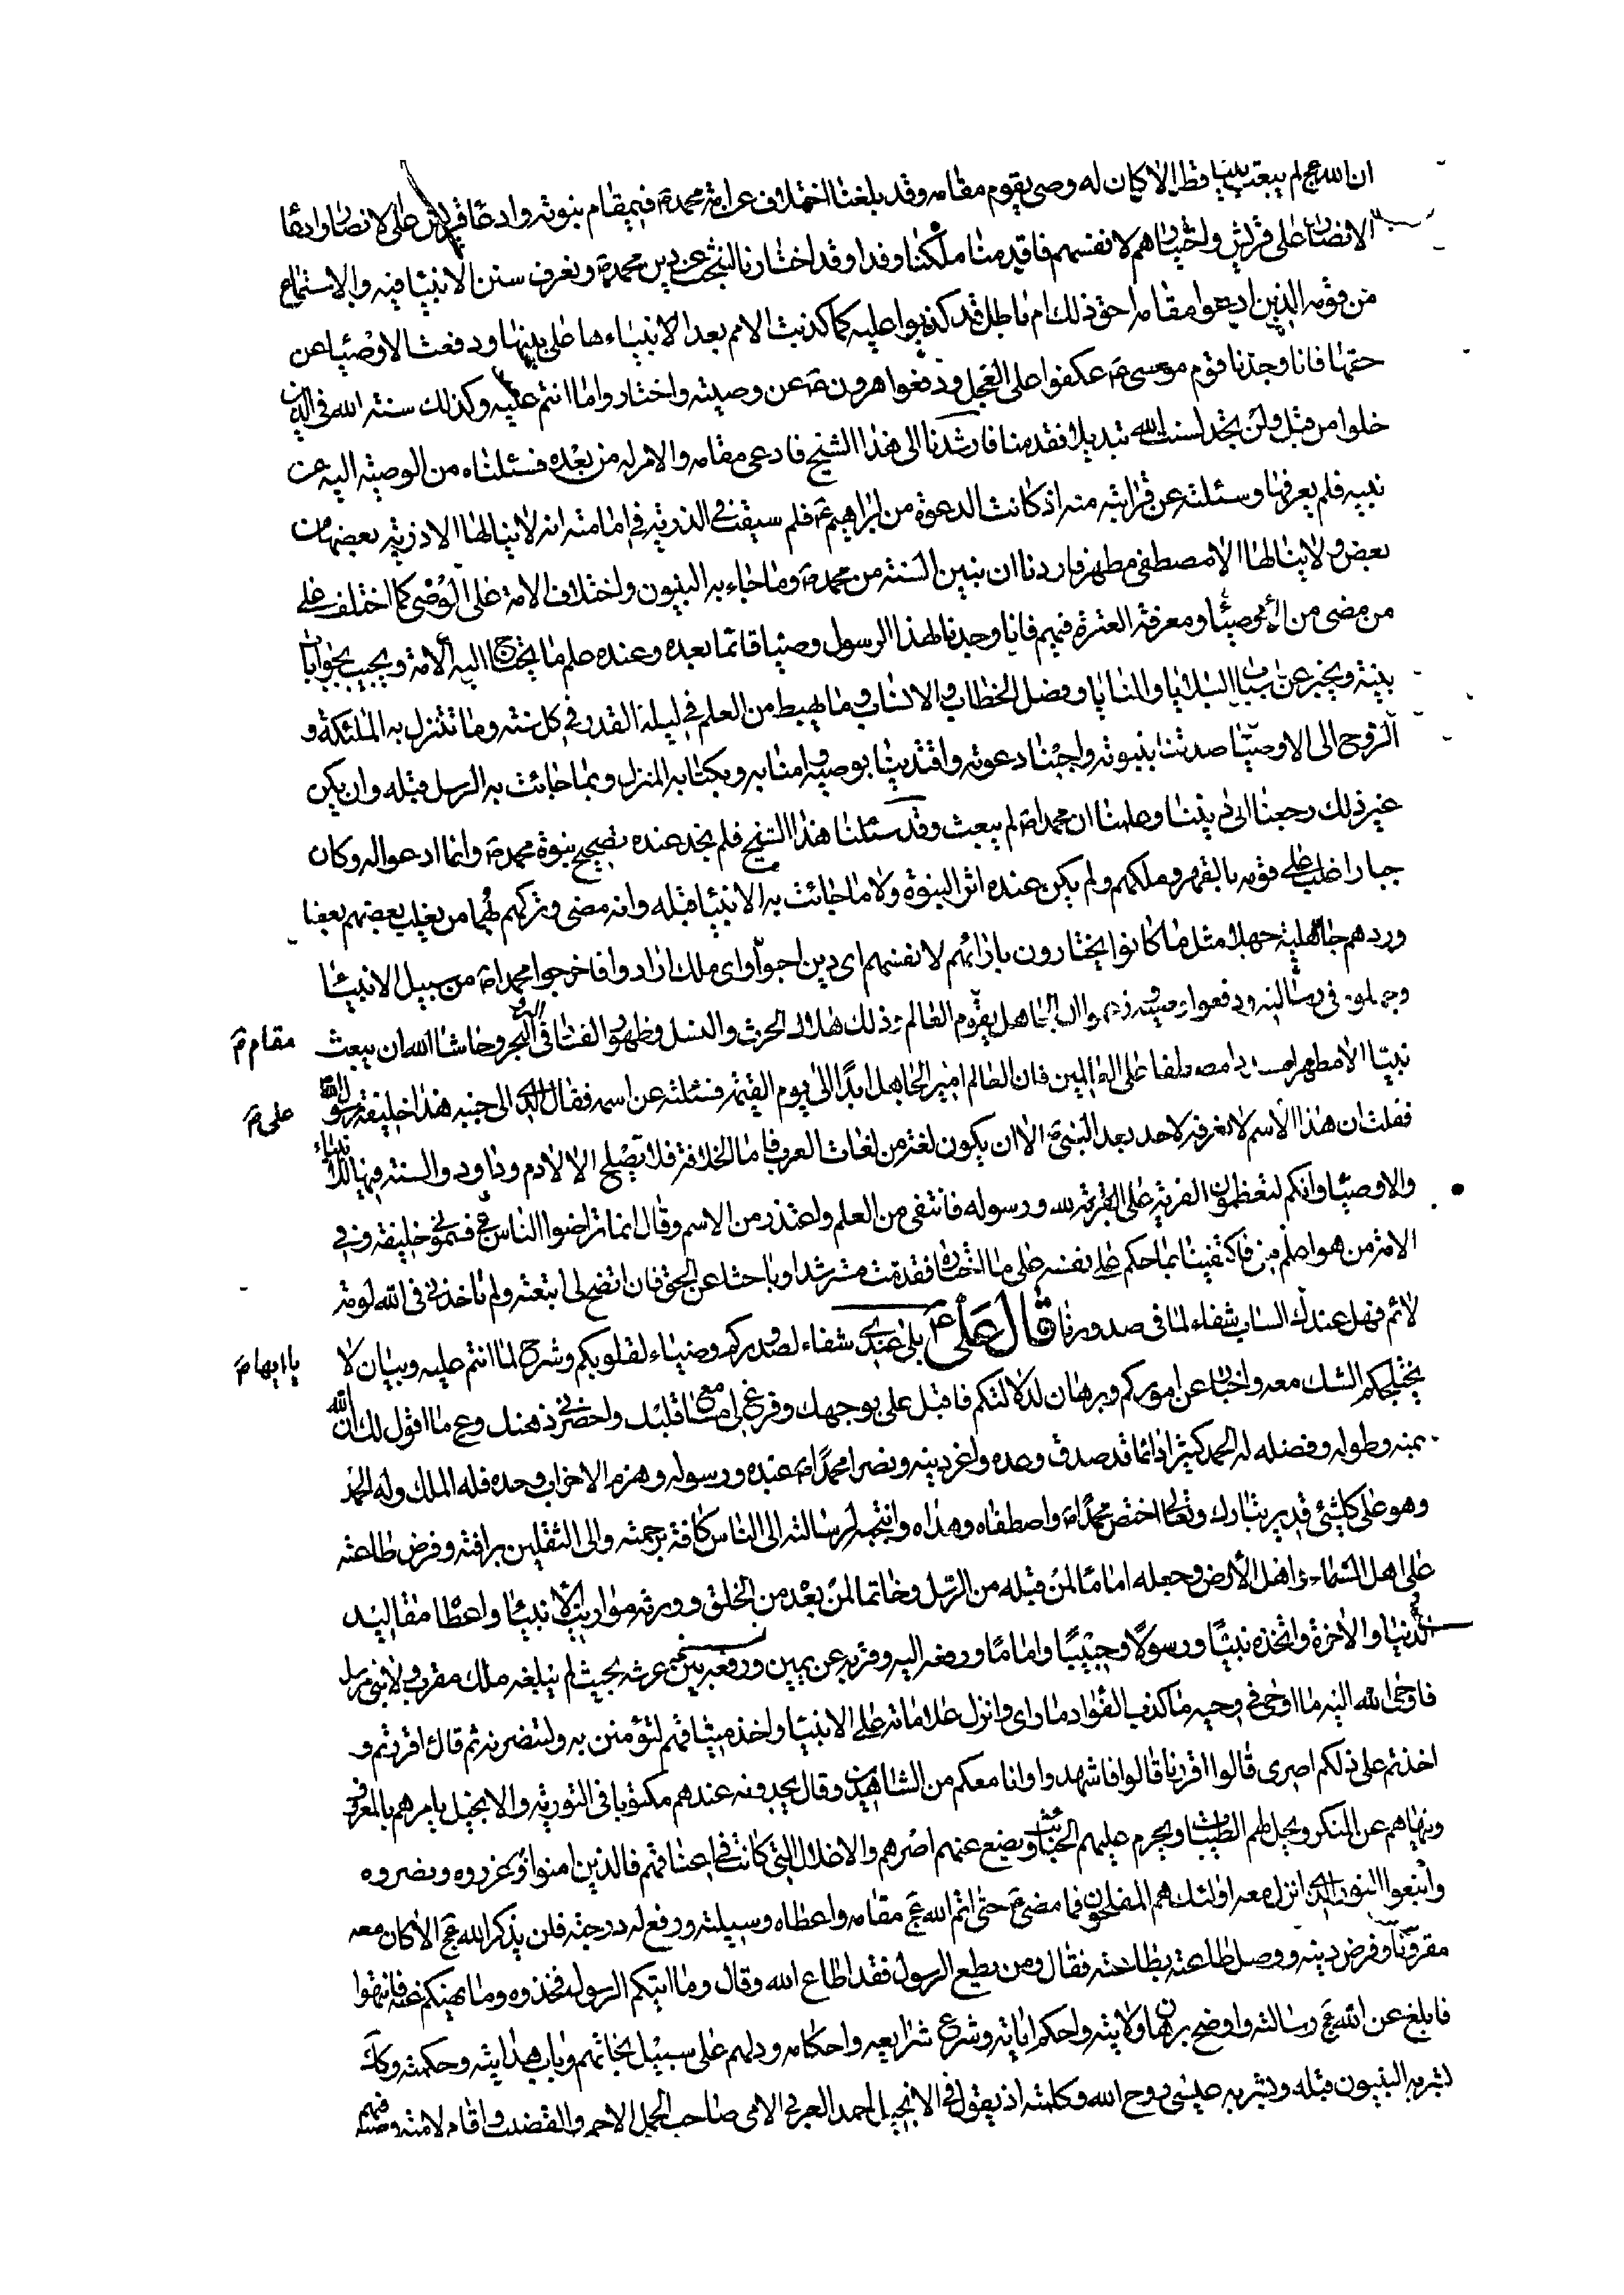 ان الله عج لم يبعث نبيا قط الا كان له وصى يقوم مقامه وقد بلغنا اختلاف عن امة محمد ص فى مقام نبوته وادعا قريش على الانصار وادعا
الانصار على قريش واختيارهم لانفسهم فاقدمنا ملكنا وفدا وقد اختارنا لنبحث عن دين محمد ص ونعرف سنن الانبيا فيه والاستماع
من قومه الذين ادعوا مقامه احق ذلك ام باطل قد كذبوا عليه كما كذبت الامم بعد الانبياءها على نبيها ودفعت الاوصيا عن
حقها فانا وجدنا قوم موسى ع عكفوا على العجل ودفعوا هرون ع عن وصيته واختاروا ما انتم عليه وكذلك سنة الله فى الذين
خلوا من قبل ولن تجد لسنت الله تبديلا فقدمنا فارشدنا الى هذا الشيخ فادعى مقامه والامر له من بعده فسئلناه من الوصيه اليه عن
نبيه فلم يعرفها وسئلته عن قرابته منه اذ كانت الدعوة من ابراهيم ع فلم سبقت فى الذريه فى امامته انه لا ينالها الا ذرية بعضها من
بعض ولا ينالها الا مصطفى مطهر فاردنا ان نبين السنة من محمد ص وما جاء به النبيون واختلاف الامة على الوصى كما اختلف على
من مضى من الاوصيا ومعرفة العترة فيهم فانا وجدنا لهذا الرسول وصيا قائما بعده وعنده علم ما يحتاج اليه الامة ويجيب بجوابات
بينة ويخبر عن اسباب البلايا والمنايا وفصل الخطاب والانساب وما يهبط من العلم فى ليلة القدر فى كل سنه وما تتنزل به الملئكة و
الروح الى الاوصيا صدقنا بنبوته واجبنا دعوته واقتدينا بوصيه وامنا به وبكتابه المنزل وبما جائت به الرسل قبله وان يكن
غير ذلك رجعنا الى ديننا وعلمنا ان محمدا ص لم يبعث وقد سئلنا هذا الشيخ فلم نجد عنده تصحيح نبوة محمد ص وانما ادعوا له وكان
جبارا غلب على قومه بالقهر وملكهم ولم يكن عنده اثر النبوة ولا ما جائت به الانبيا قبله وانه مضى وتركهم بهما من يغلب بعضهم بعضا
وردهم جاهلية جهلا مثل ما كانوا يختارون بارائهم لانفسهم اى دين احبوا واى ملك ارادوا فاخرجوا محمدا ص من سبيل الانبيا
وجهلوه فى رسالته ودفعوا وصيته وزعموا ان الجاهل يقوم العالم وذلك هلاك الحرث والنسل وظهور الفساد فى البر والبحر وحاشا الله ان يبعث
مقام م
نبيا الا مطهرا مسددا مصطفا على العالمين فان العالم امير الجاهل ابدا الى يوم القيمة فسئلته عن اسمه فقال الذى الى جنبه هذا خليفة رسول الله ص
على م
فقلت ان هذا الاسم لا نعرفه لاحد بعد النبى ص الا ان يكون لغة من لغات العرب فاما الخلافة فلا تصلح الا لادم وداود والسنة فيها للانبياء
والاوصيا وانكم لتعظمون الفرية على الله ورسوله فانتفى من العلم واعتذر من الاسم وقال انما تراضوا الناس بى فسمونى خليفة وفى
الامة من هو اعلم منى فاكتفينا بما حكم على نفسه على ما اختاره فقدمت مسترشدا وباحثا عن الحق فان اتضح لى اتبعته ولم تاخذنى فى الله لومة
لائم فهل عندك ايها الشاب شفاء لما فى صدورنا قال على ع بلى عندى شفاء لصدوركم وضياء لقلوبكم وشرح لما انتم عليه وبيان لا
يا ايها م
يختلجكم الشك معه واخبار عن اموركم وبرهان لدلالتكم فاقبل على بوجهك وفرغ لى مسامع قلبك واحضرنى ذهنك وع ما اقول لك ان الله
بمنه وطوله وفضله له الحمد كثيرا دائما قد صدق وعده واعز دينه ونصر محمدا ص عبده ورسوله وهزم الاحزاب وحده فله الملك وله الحمد
وهو على كل شئ قدير تبارك وتعالى اختص محمدا ص واصطفاه وهداه وانتجبه لرسالته الى الناس كافة برحمته والى الثقلين برافته وفرض طاعته
على اهل السماء واهل الارض وجعله اماما لمن قبله من الرسل وخاتما لمن بعد من الخلق وورثه مواريث الانبيا واعطا مقاليد
الدنيا والاخرة واتخذه نبيا ورسولا وحبيبا واماما ورفعه اليه وقربه عن يمين عرشه بحيث لم يبلغه ملك مقرب ولا نبى مرسل
فاوحى الله اليه ما اوحى فى وحيه ما كذب الفؤاد ما راى وانزل علاماته على الانبيا واخذ ميثاقهم لتؤمنن به ولتنصرنه ثم قال اقررتم و
اخذتم على ذلكم اصرى قالوا اقررنا قالوا فاشهدوا وانا معكم من الشاهدين وقال يجدونه عندهم مكتوبا فى التورية والانجيل يامرهم بالمعروف
وينهاهم عن المنكر ويحل لهم الطيبات ويحرم عليهم الخبائث ويضع عنهم اصرهم والاغلال التى كانت فى اعناقهم فالذين امنوا وعزروه ونصروه
واتبعوا النور الذى انزل معه اولئك هم المفلحون فما مضى ع حتى اتم الله عج مقامه واعطاه وسيلته ورفع له درجته فلن يذكر الله عج الا كان معه
مقرونا وفرض دينه ووصل طاعته بطاعته فقال ومن يطع الرسول فقد اطاع الله وقال وما اتيكم الرسول فخذوه وما نهيكم عنه فانتهوا
فابلغ عن الله عج رسالته واوضح برهان ولايته واحكم اياته وشرع شرايعه واحكامه ودلهم على سبيل نجاتهم وباب هدايته وحكمته وكذلك
بشر به النبيون قبله وبشر به عيسى روح الله وكلمته اذ يقول فى الانجيل احمد العربى الامى صاحب الجمل الاحمر والقضيب واقام لامته وصيه فيهم